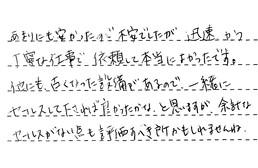 あまりにも安かったので不安でしたが、迅速かつ
丁寧な仕事で、依頼して本当によかったです。
他にも、古くなった設備があるので、一緒に
セールスして下されば良かったかな、と思いますが、余計な
セールスがない点も評価すべき所かもしれませんね。